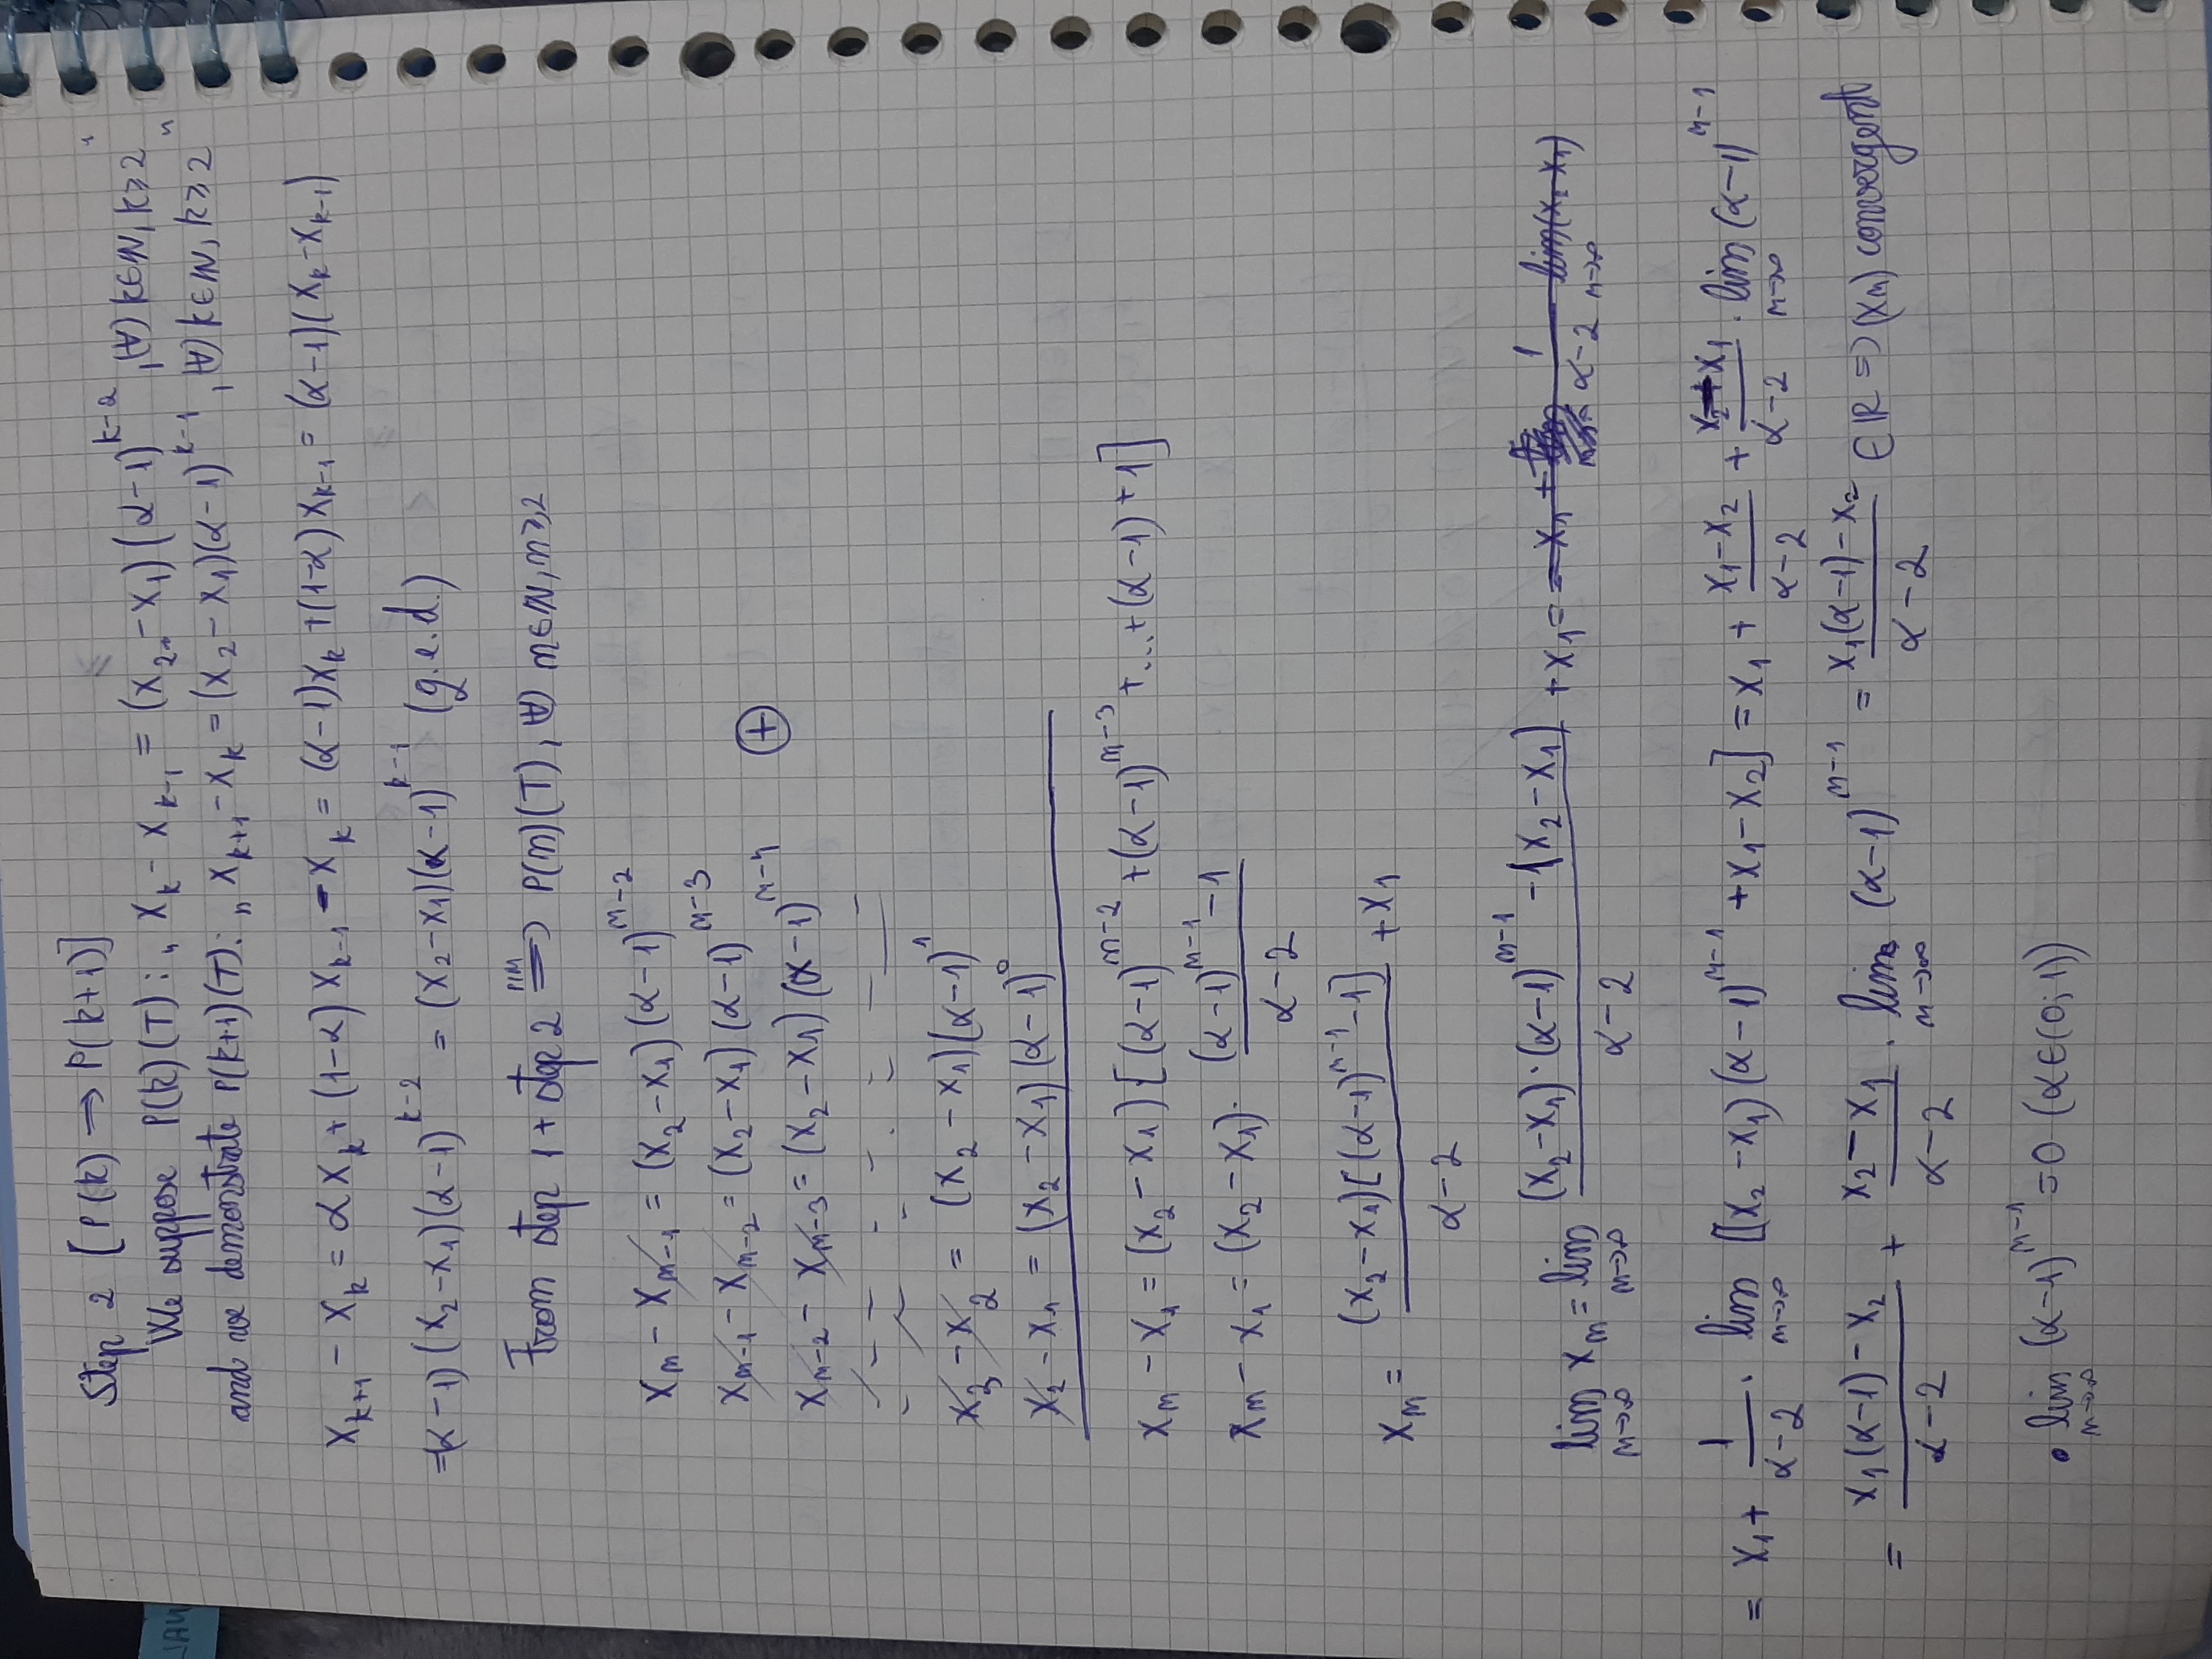 JAN
Step 2 [P(k) ⇒ P(k+1)]
We suppose P(k)(T): „ x_k - x_{k-1} = (x_2 - x_1)(α-1)^{k-2}, (∀) k∈ℕ, k≥2 "
and we demonstrate P(k+1)(T): „ x_{k+1} - x_k = (x_2 - x_1)(α-1)^{k-1}, (∀) k∈ℕ, k≥2 "
x_{k+1} - x_k = αx_k + (1-α)x_{k-1} - x_k = (α-1)x_k + (1-α)x_{k-1} = (α-1)(x_k - x_{k-1})
=(α-1)(x_2-x_1)(α-1)^{k-2} = (x_2-x_1)(α-1)^{k-1} (q.e.d.)
From step 1 + step 2 ⇒^{PIM} P(n)(T), (∀) n∈ℕ, n≥2
x_n - x_{n-1} = (x_2-x_1)(α-1)^{n-2}
x_{n-1} - x_{n-2} = (x_2-x_1)(α-1)^{n-3}
⊕
x_{n-2} - x_{n-3} = (x_2-x_1)(α-1)^{n-4}
x_3 - x_2 = (x_2-x_1)(α-1)^1
x_2 - x_1 = (x_2-x_1)(α-1)^0
x_n - x_1 = (x_2-x_1)[(α-1)^{n-2} + (α-1)^{n-3} + ... + (α-1) + 1]
x_n - x_1 = (x_2-x_1) · ((α-1)^{n-1} - 1)/(α-2)
x_n = ((x_2-x_1)[(α-1)^{n-1} - 1])/(α-2) + x_1
lim_{n→∞} x_n = lim_{n→∞} ((x_2-x_1)·(α-1)^{n-1} - (x_2-x_1))/(α-2) + x_1 = = x_1 + 1/(α-2) lim_{n→∞} (x_2-x_1)
= x_1 + 1/(α-2) · lim_{n→∞} [(x_2-x_1)(α-1)^{n-1} + x_1 - x_2] = x_1 + (x_1-x_2)/(α-2) + (x_2-x_1)/(α-2) · lim_{n→∞} (α-1)^{n-1}
= (x_1(α-1) - x_2)/(α-2) + (x_2-x_1)/(α-2) · lim_{n→∞} (α-1)^{n-1} = (x_1(α-1) - x_2)/(α-2) ∈ℝ ⇒ (x_n) convergent
• lim_{n→∞} (α-1)^{n-1} = 0 (α∈(0;1))